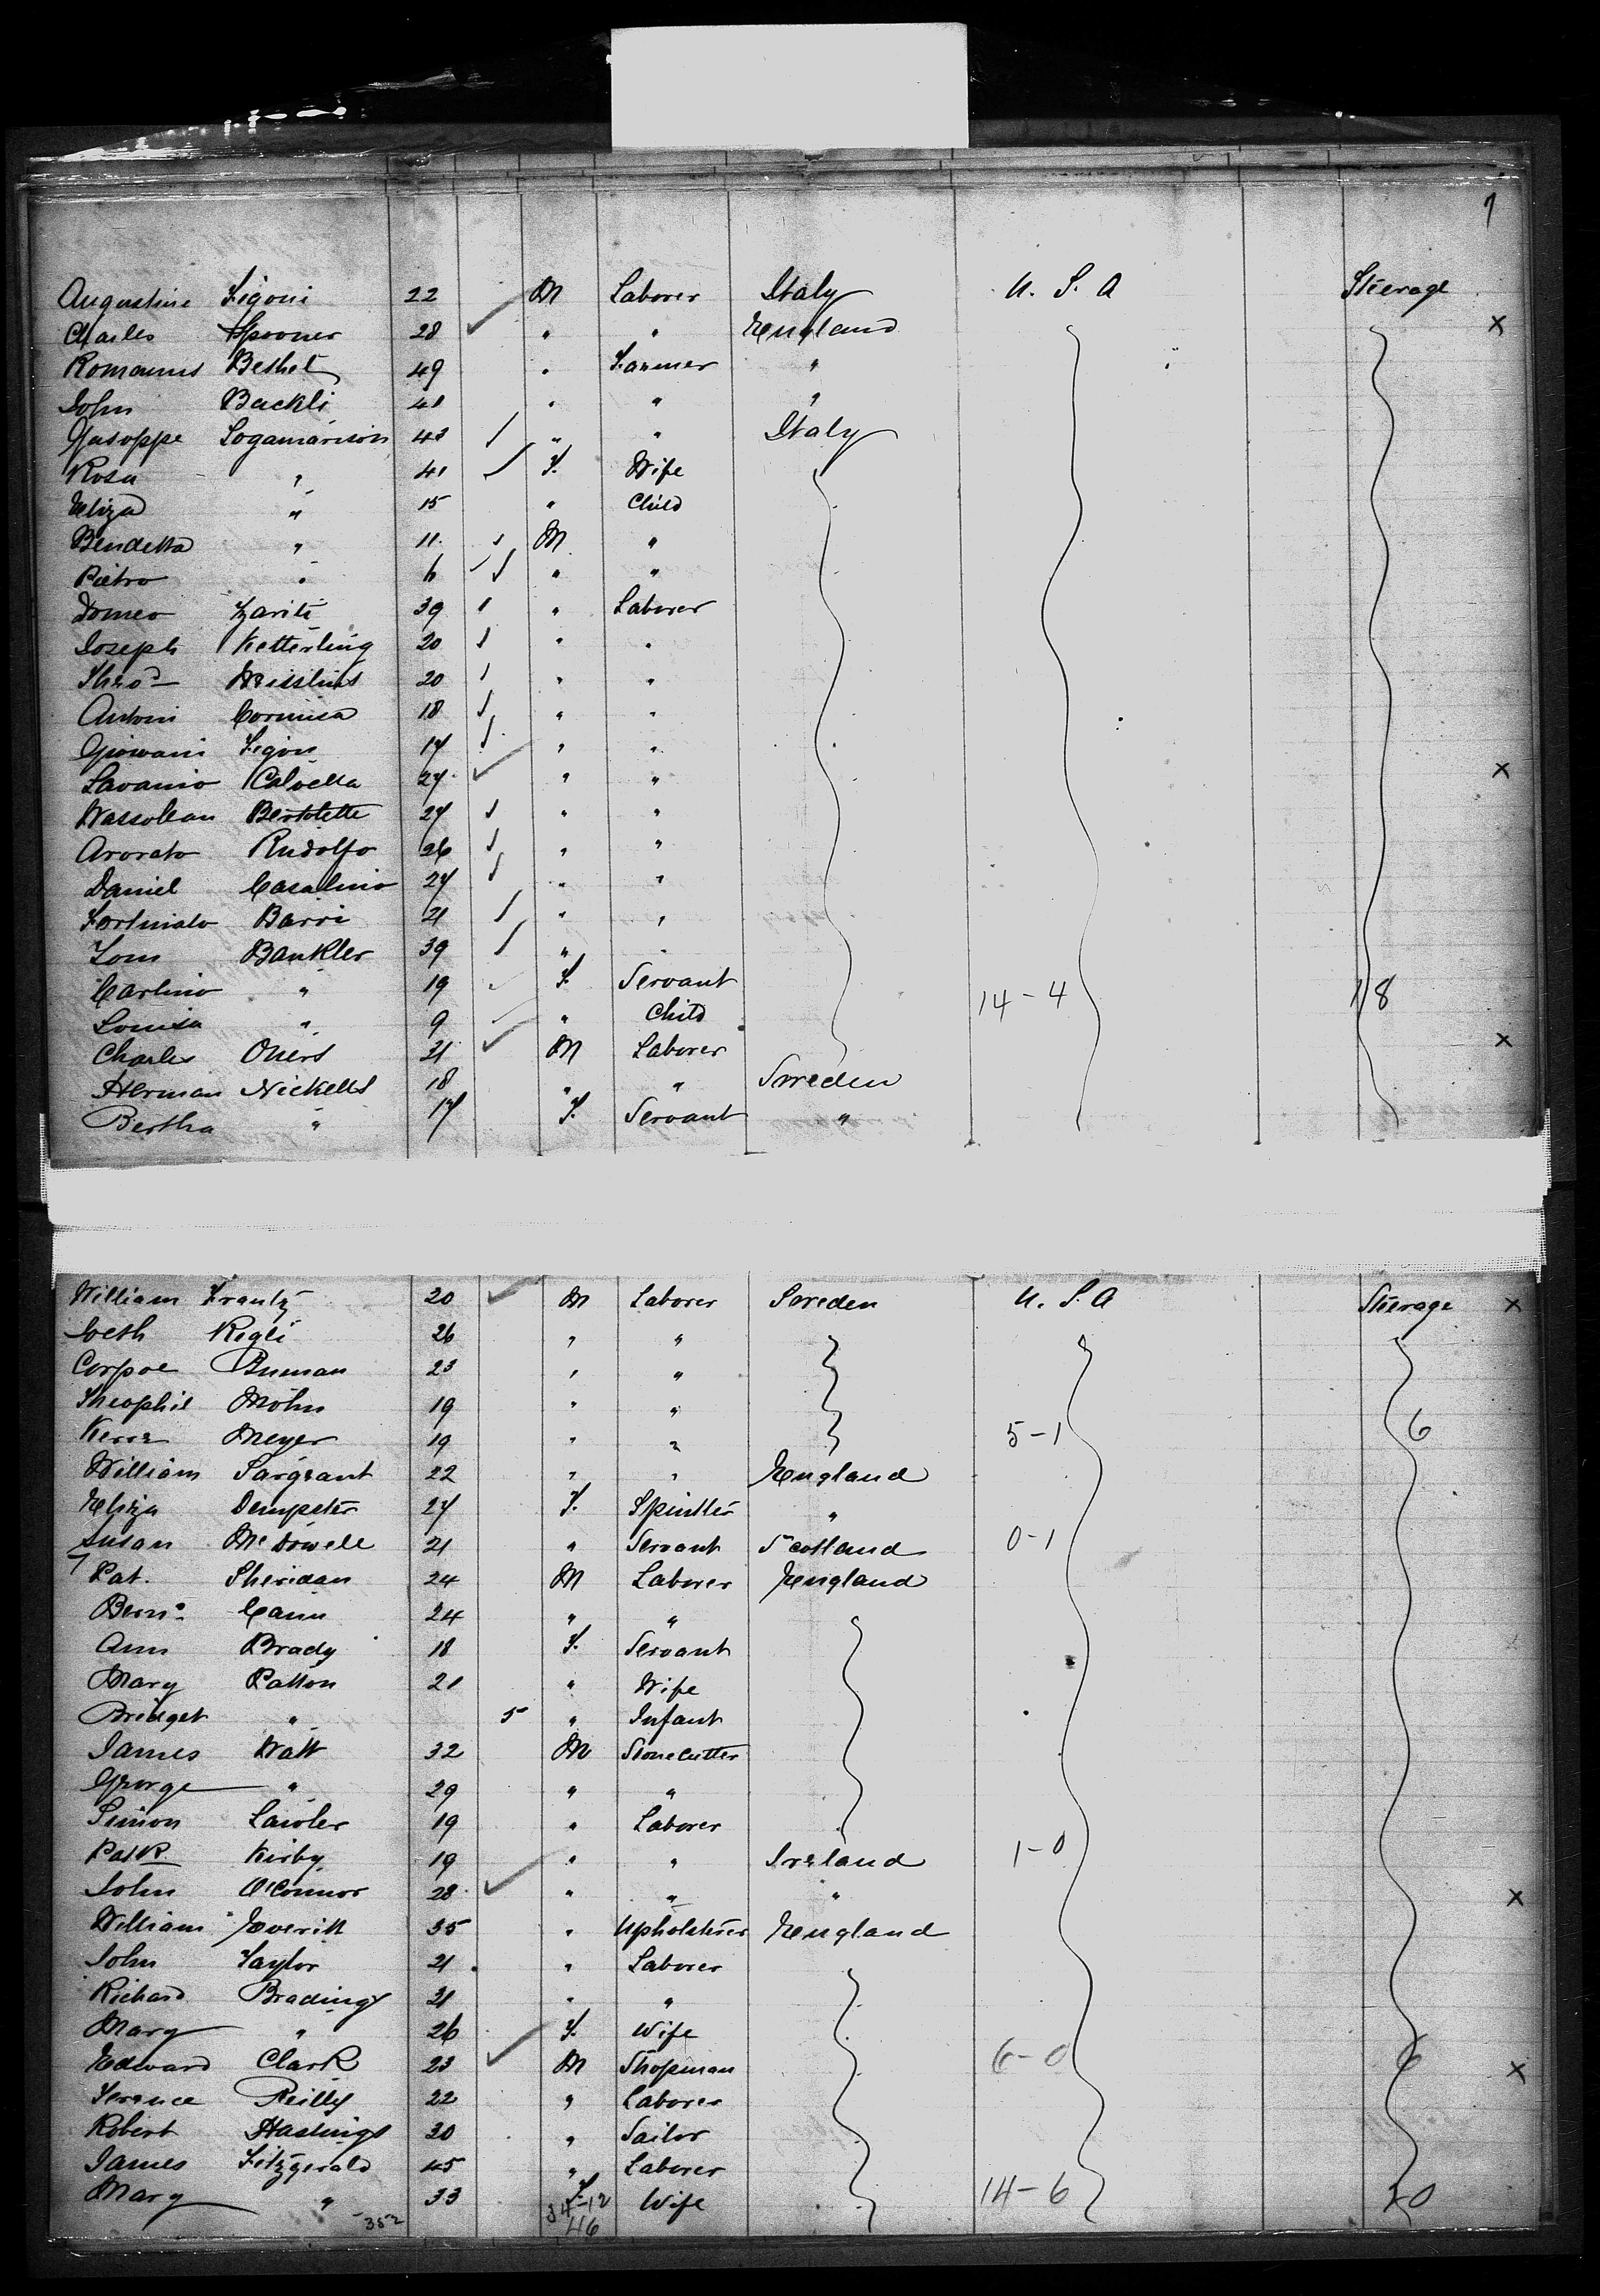 7
Augustine Figoni 22 M Laborer Italy U. S. A Steerage
Charles Spooner 28 " " England x
Romanus Bethet 49 " Farmer "
John Backli 41 " " "
Guseppe Logamarison 43 " " Italy
Rosa " 41 F. Wife
Eliza " 15 " Child
Bendetta " 11 M "
Pietro " 6 " "
Domeo Zariti 39 " Laborer
Joseph Ketterling 20 " "
Theod 20 " "
Antoni Cormisa 18 " "
Giovani Figon 17 " "
Savanio Calvetta 27 " " x
Wassolean Bertolette 27 " "
Avorato Rudolfo 26 " "
Daniel Casalino 27 " "
Fortunato Barri 21 " "
Tom Bankler 39 " "
Carlino " 19 F. Servant 14-4 18
Louisa " 9 " Child
Charles Oners 21 M Laborer x
Herman Nickells 18 " " Sweden
Bertha " 17 F. Servant "
William Frantz 20 M Laborer Sweden U. S. A Steerage x
Kegli 26 " "
Corpoe Buman 23 " "
Theophil Mohn 19 " " 6
Meyer 19 " " 5-1
William Sargeant 22 " " England
Eliza Dempster 27 F. Spinster "
Susan McDowell 21 " Servant Scotland 0-1
Pat. Sheridan 24 M Laborer England
Bernd Cain 24 " "
Ann Brady 18 F. Servant
Mary Patton 21 " Wife
Bridget " 5 " Infant
James Watt 32 M Stonecutter
George " 29 " "
Simon Lawler 19 " Laborer
Patk Kirby 19 " " Ireland 1-0
John O'Connor 28 " " " x
William Everitt 35 " Upholsterer England
John Taylor 21 " Laborer
Richard Bradings 21 " "
Mary " 26 F. Wife
Edward Clark 23 M Shopman 6-0 6 x
Terence Reilly 22 " Laborer
Robert Hastings 20 " Sailor
James Fitzgerald 45 " Laborer
Mary " 33 F. Wife 14-6 20
352 34-12
46